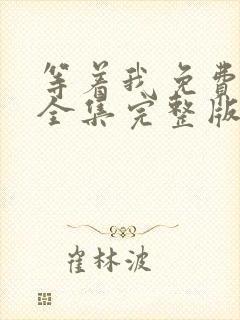 等着我免费
全集完整版
崔林波